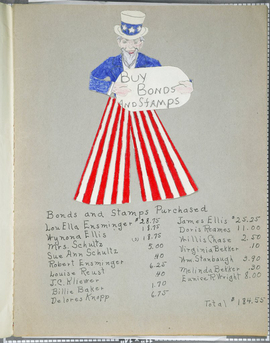 Buy
Bonds
and Stamps
Bonds and Stamps Purchased
Lou Ella Ensminger $28.75
Wynona Ellis 18.75
Mrs. Schultz (2) 18.75
Sue Ann Schultz 5.00
Robert Ensminger 40
Louise Reust 6.25
J.C. Kliewer 40
Billie Baker 1.70
Delores Knopp 6.75
James Ellis $25.25
Doris Reames 11.00
Willis Chase 2.50
Virginia Bekker .10
Wm. Stanbaugh 3.90
Melinda Bekker .20
Eunice R. Wright 8.00
Total $184.55